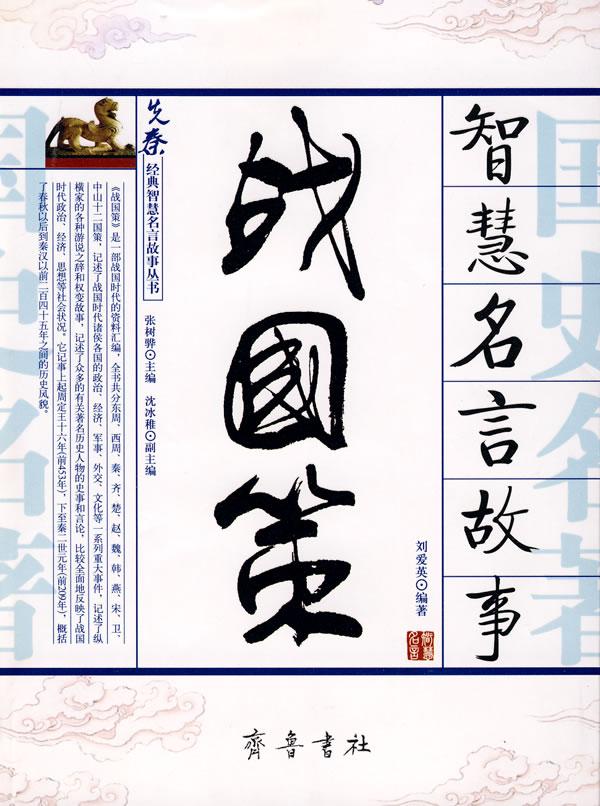 智慧名言故事
战国策
刘爱英⊙编著
智慧
名言
先秦
经典智慧名言故事丛书
张树骅⊙主编 沈冰稚⊙副主编
《战国策》是一部战国时代的资料汇编，全书共分东周、西周、秦、齐、楚、赵、魏、韩、燕、宋、卫、
中山十二国策，记述了战国时代诸侯各国的政治、经济、军事、外交、文化等一系列重大事件，记述了纵
横家的各种游说之辞和权变故事，记述了众多的有关著名历史人物的史事和言论，比较全面地反映了战国
时代政治、经济、思想等社会状况。它记事上起周定王十六年(前453年)，下至秦二世元年(前209年)，概括
了春秋以后到秦汉以前二百四十五年之间的历史风貌。
国史名著
国史名著
齊魯書社